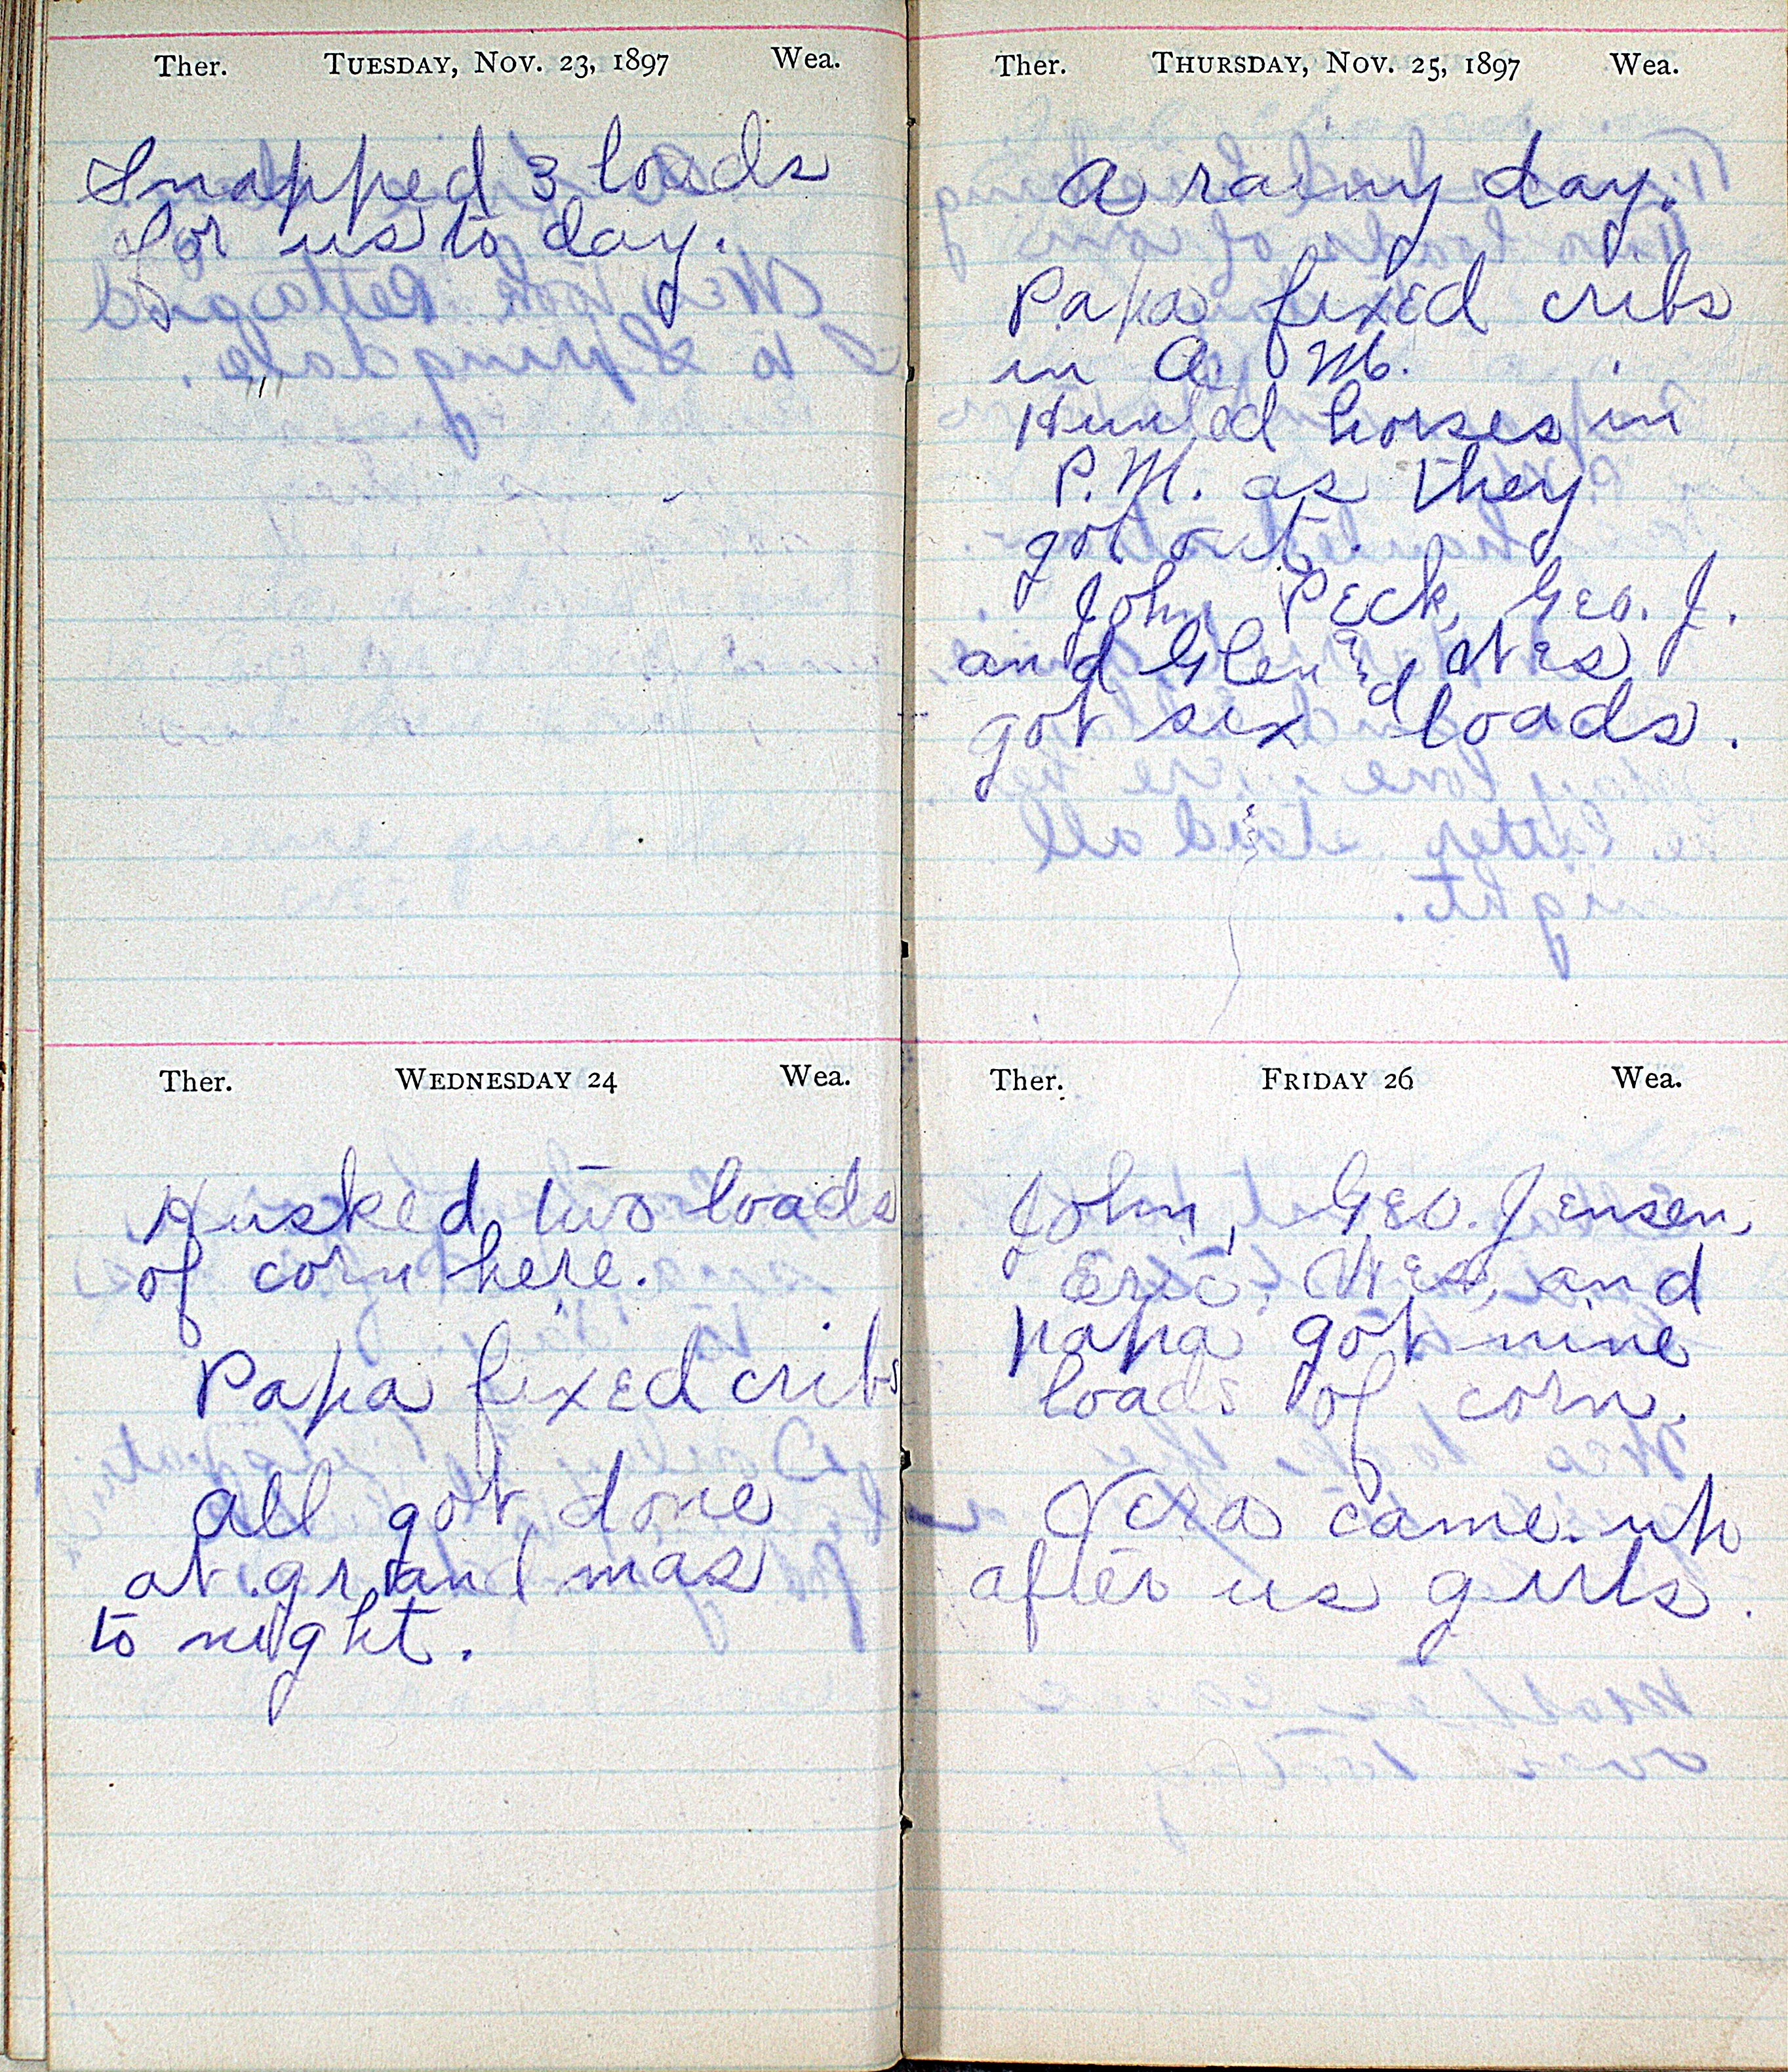 Ther. TUESDAY, NOV. 23, 1897 Wea.
Snapped 3 loads
for us to day.
Ther. WEDNESDAY 24 Wea.
Husked two loads
of corn here.
Papa fixed cribs
all got done
at grand mas
to night.
Ther. THURSDAY, NOV. 25, 1897 Wea.
A rainy day.
Papa fixed cribs
in A. M.
Hunted horses in
P. M. as they
got out.
John Peck, Geo. J.
and Glen and Wes
got six loads.
Ther. FRIDAY 26 Wea.
John, Geo. Jensen,
Eric, Wes, and
papa got nine
loads of corn.
Vera came up
after us girls.